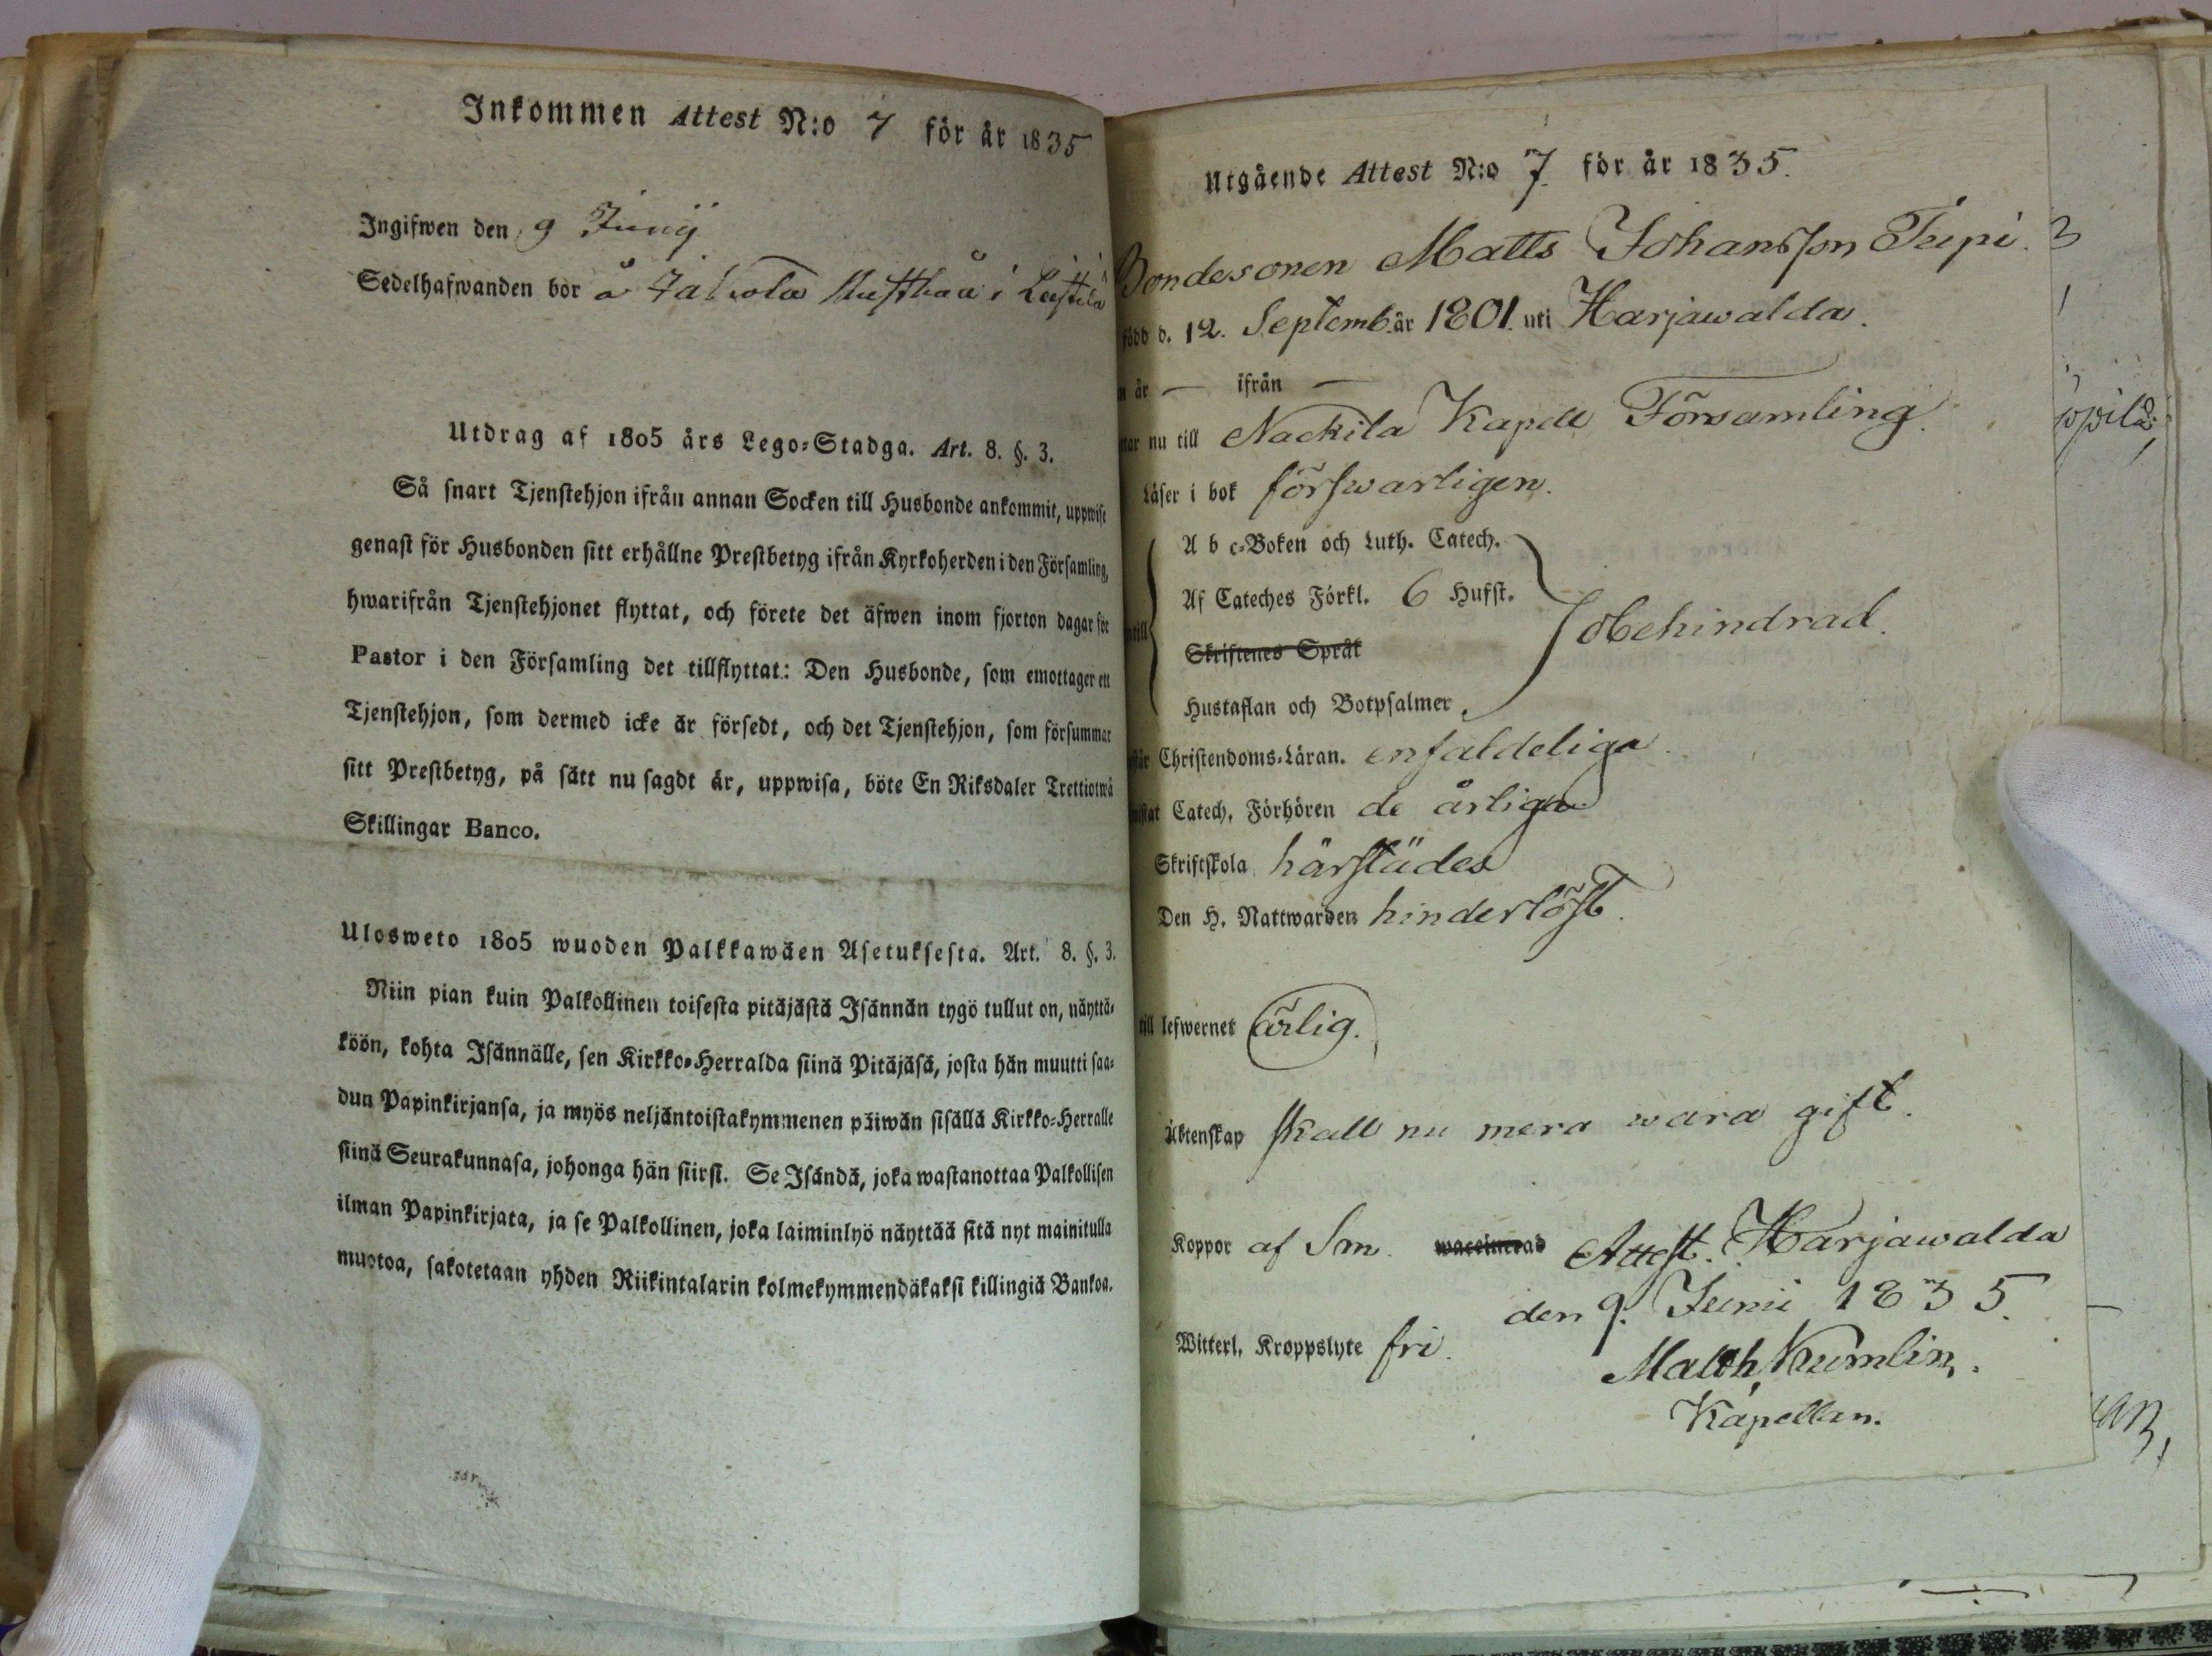 Inkommen Attest N:o 7 för år 1835
Ingifwen den 9 Junij
Sedelhafwanden bor å i
Utdrag af 1805 års Lego-Stadga. Art. 8. §. 3.
Så snart Tjenstehjon ifrån annan Socken till Husbonde ankommit, uppwise
genast för Husbonden sitt erhållne Prestbetyg ifrån Kyrkoherden i den Församling,
hwarifrån Tjenstehjonet flyttat, och förete det äfwen inom fjorton dagar för
Pastor i den Församling det tillflyttat: Den Husbonde, som emottager ett
Tjenstehjon, som dermed icke är försedt, och det Tjenstehjon, som försummar
sitt Prestbetyg, på sätt nu sagdt är, uppwisa, böte En Riksdaler Trettiotwå
Skillingar Banco.
Ulosweto 1805 wuoden Palkkawäen Asetuksesta. Art. 8. §. 3.
Niin pian kuin Palkollinen toisesta pitäjästä Isännän tygö tullut on, näyttä-
köön, kohta Isännälle, sen Kirkko-Herralda siinä Pitäjäsä, josta hän muutti saa-
dun Papinkirjansa, ja myös neljäntoistakymmenen päiwän sisällä Kirkko-Herralle
siinä Seurakunnasa, johonga hän siirsi. Se Isändä, joka wastanottaa Palkollisen
ilman Papinkirjata, ja se Palkollinen, joka laiminlyö näyttää sitä nyt mainitulla
muotoa, sakotetaan yhden Riikintalarin kolmekymmendäkaksi killingiä Bankoa.
Utgående Attest N:o 7. för år 1835.
Bondesonen Matts Johansson Tupi.
född d. 12. Septemb. år 1801. uti Harjawalda.
år — ifrån —
nu till Nackila Kapell Församling.
Läser i bok förswarligen.
A b c-Boken och Luth. Catech.
Af Cateches Förkl. 6 Hufst.
obehindrad.
Skriftenes Språk
Hustaflan och Botpsalmer
Christendoms-Läran. enfaldeliga.
Catech. Förhören de årliga
Skriftskola härstädes
Den H. Nattwarden hinderlöst.
till lefwernet ärlig.
Äktenskap skall nu mera wara gift.
Koppor af Sm. waccinerad Attest. Harjawalda
den 9. Junii 1835.
Witterl. Kroppslyte fri.
Matth. Kumlin.
Kapellan.